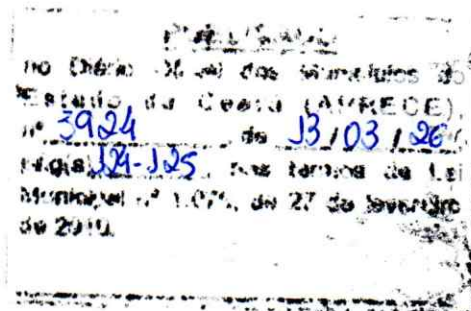 Publicado
no Diário Oficial dos Municípios do
Estado do Ceará (APRECE),
nº 3924 de 13/03/26
124-125, nos termos da Lei
Municipal nº 1.075, de 27 de fevereiro
de 2010.